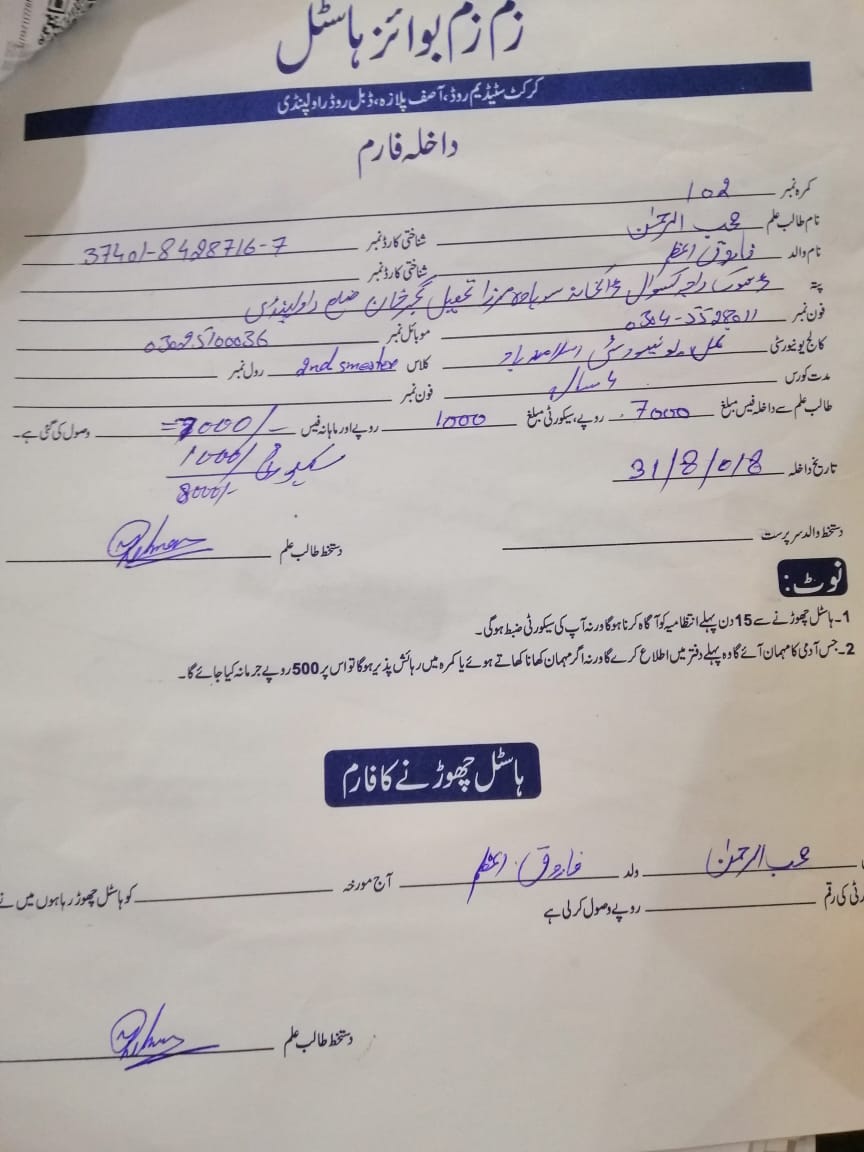 زم زم بوائز ہاسٹل
کرکٹ سٹیڈیم روڈ، آصف پلازہ، ڈبل روڈ راولپنڈی
داخلہ فارم
کمرہ نمبر 102
نام طالب علم محب الرحمٰن شناختی کارڈ نمبر 37401-8428716-7
نام والد فاروق اعظم شناختی کارڈ نمبر
پتہ ڈھوک راجہ کسوال ڈاکخانہ تحصیل گجر خان ضلع راولپنڈی
فون نمبر 0304-5528011 موبائل نمبر 03025100036
کالج یونیورسٹی نمل یونیورسٹی اسلام آباد کلاس 2nd smester رول نمبر
مدت کورس 4 سال فون نمبر
طالب علم سے داخلہ فیس مبلغ 7000 روپے، سیکورٹی مبلغ 1000 روپے اور ماہانہ فیس =7000/- وصول کی گئی ہے۔
1000/ سیکیورٹی
8000/-
تاریخ داخلہ 31/8/018
دستخط والد سرپرست دستخط طالب علم
نوٹ:
1۔ ہاسٹل چھوڑنے سے 15 دن پہلے انتظامیہ کو آگاہ کرنا ہوگا ورنہ آپ کی سیکورٹی ضبط ہوگی۔
2۔ جس آدمی کا مہمان آئے گا وہ پہلے دفتر میں اطلاع کرے گا ورنہ اگر مہمان کھانا کھاتے ہوئے یا کمرہ میں رہائش پذیر ہوگا تو اس پر 500 روپے جرمانہ کیا جائے گا۔
ہاسٹل چھوڑنے کا فارم
محب الرحمٰن ولد فاروق اعظم آج مورخہ کو ہاسٹل چھوڑ رہا ہوں میں نے
رٹی کی رقم روپے وصول کر لی ہے
دستخط طالب علم